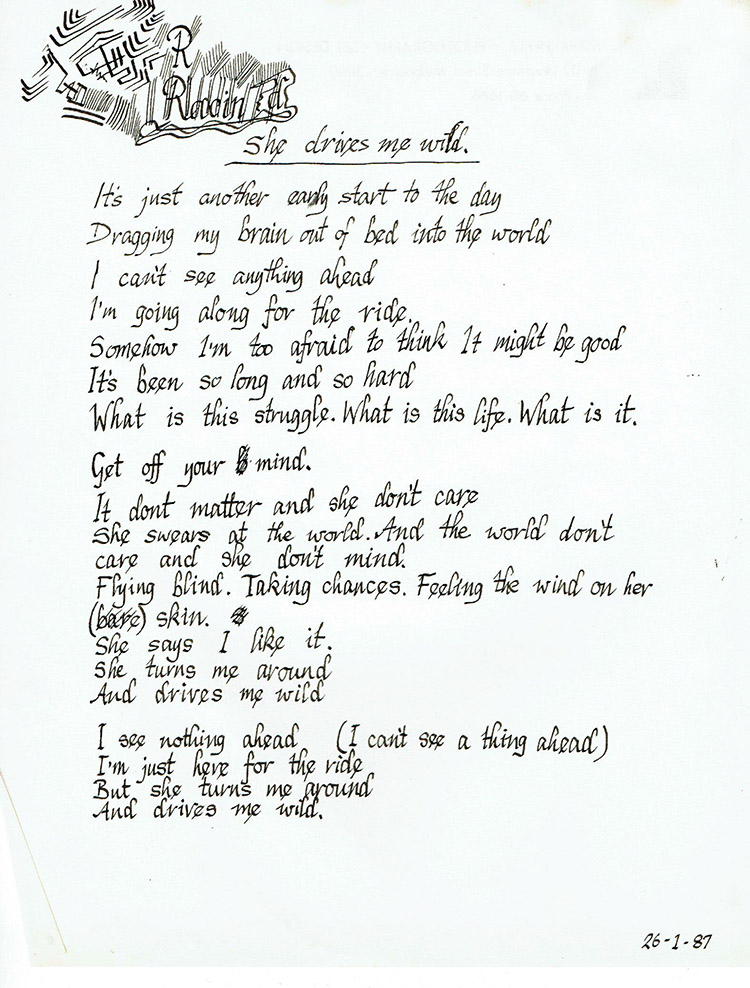 R
She drives me wild.
It's just another early start to the day
Dragging my brain out of bed into the world
I can't see anything ahead
I'm going along for the ride.
Somehow I'm too afraid to think It might be good
It's been so long and so hard
What is this struggle. What is this life. What is it.
Get off your mind.
It dont matter and she don't care
She swears at the world. And the world don't
care and she don't mind.
Flying blind. Taking chances. Feeling the wind on her
(bare) skin.
She says I like it.
She turns me around
And drives me wild
I see nothing ahead (I can't see a thing ahead)
I'm just here for the ride
But she turns me around
And drives me wild.
26-1-87